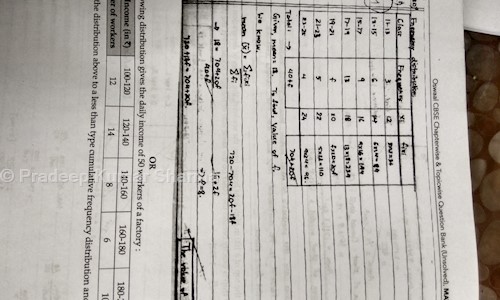 Oswaal CBSE Chapterwise & Topicwise Question Bank (Unsolved), MA
Frequency distribution
Class Frequency xi fixi
11-13 3 12
13-15 6
15-17 9 16
17-19 13 18
19-21 f 20
21-23 5 22 5x22=110
23-25 4 24
Total → 40+f 704+20f
Given, mean = 18 To find, value of f.
We know,
mean
→ 18 = 704+20f
40+f
720+18f = 704+20f
720-704 = 20f-18f
16=2f
→ f=8.
The value of
OR
wing distribution gives the daily income of 50 workers of a factory :
Income (in ₹) 100-120 120-140 140-160 160-180 180-
er of workers 12 14 8 6 10
the distribution above to a less than type cumulative frequency distribution and
© Pradeep Kumar Shar